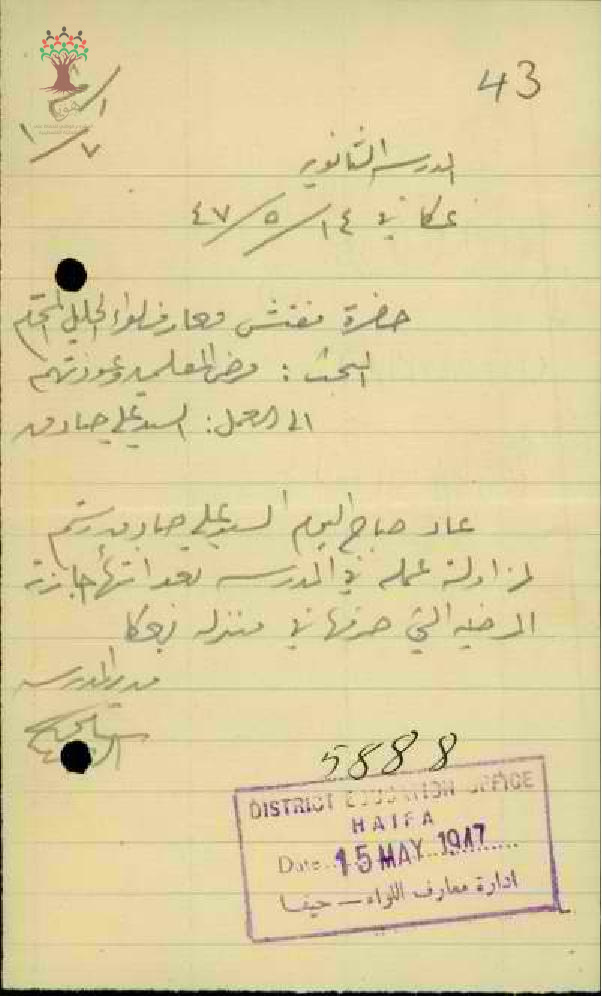 43
١/٧
المدرسة الثانوية
عكا في ١٤/٥/٤٧
حضرة مفتش معارف لواء الجليل المحترم
البحث : مرض المعلمين وعودتهم
الى العمل : السيد علي صادق
عاد صباح اليوم السيد علي صادق رستم
لمزاولة عمله في المدرسة بعد انتهاء اجازته
المرضيه التي صرفها في منزله بعكا
مدير المدرسه
5888
DISTRICT EDUCATION OFFICE
HAIFA
Date 15 MAY 1947
ادارة معارف اللواء - حيفا